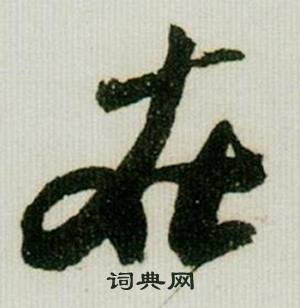 在
词典网